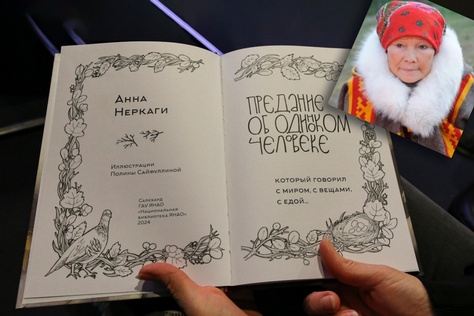 Анна
Неркаги
Иллюстрации
Полины Сайфуллиной
Салехард
ГАУ ЯНАО
«Национальная
библиотека ЯНАО»
2024
Предание
об одиноком
человеке
который говорил
с миром, с вещами,
с едой...